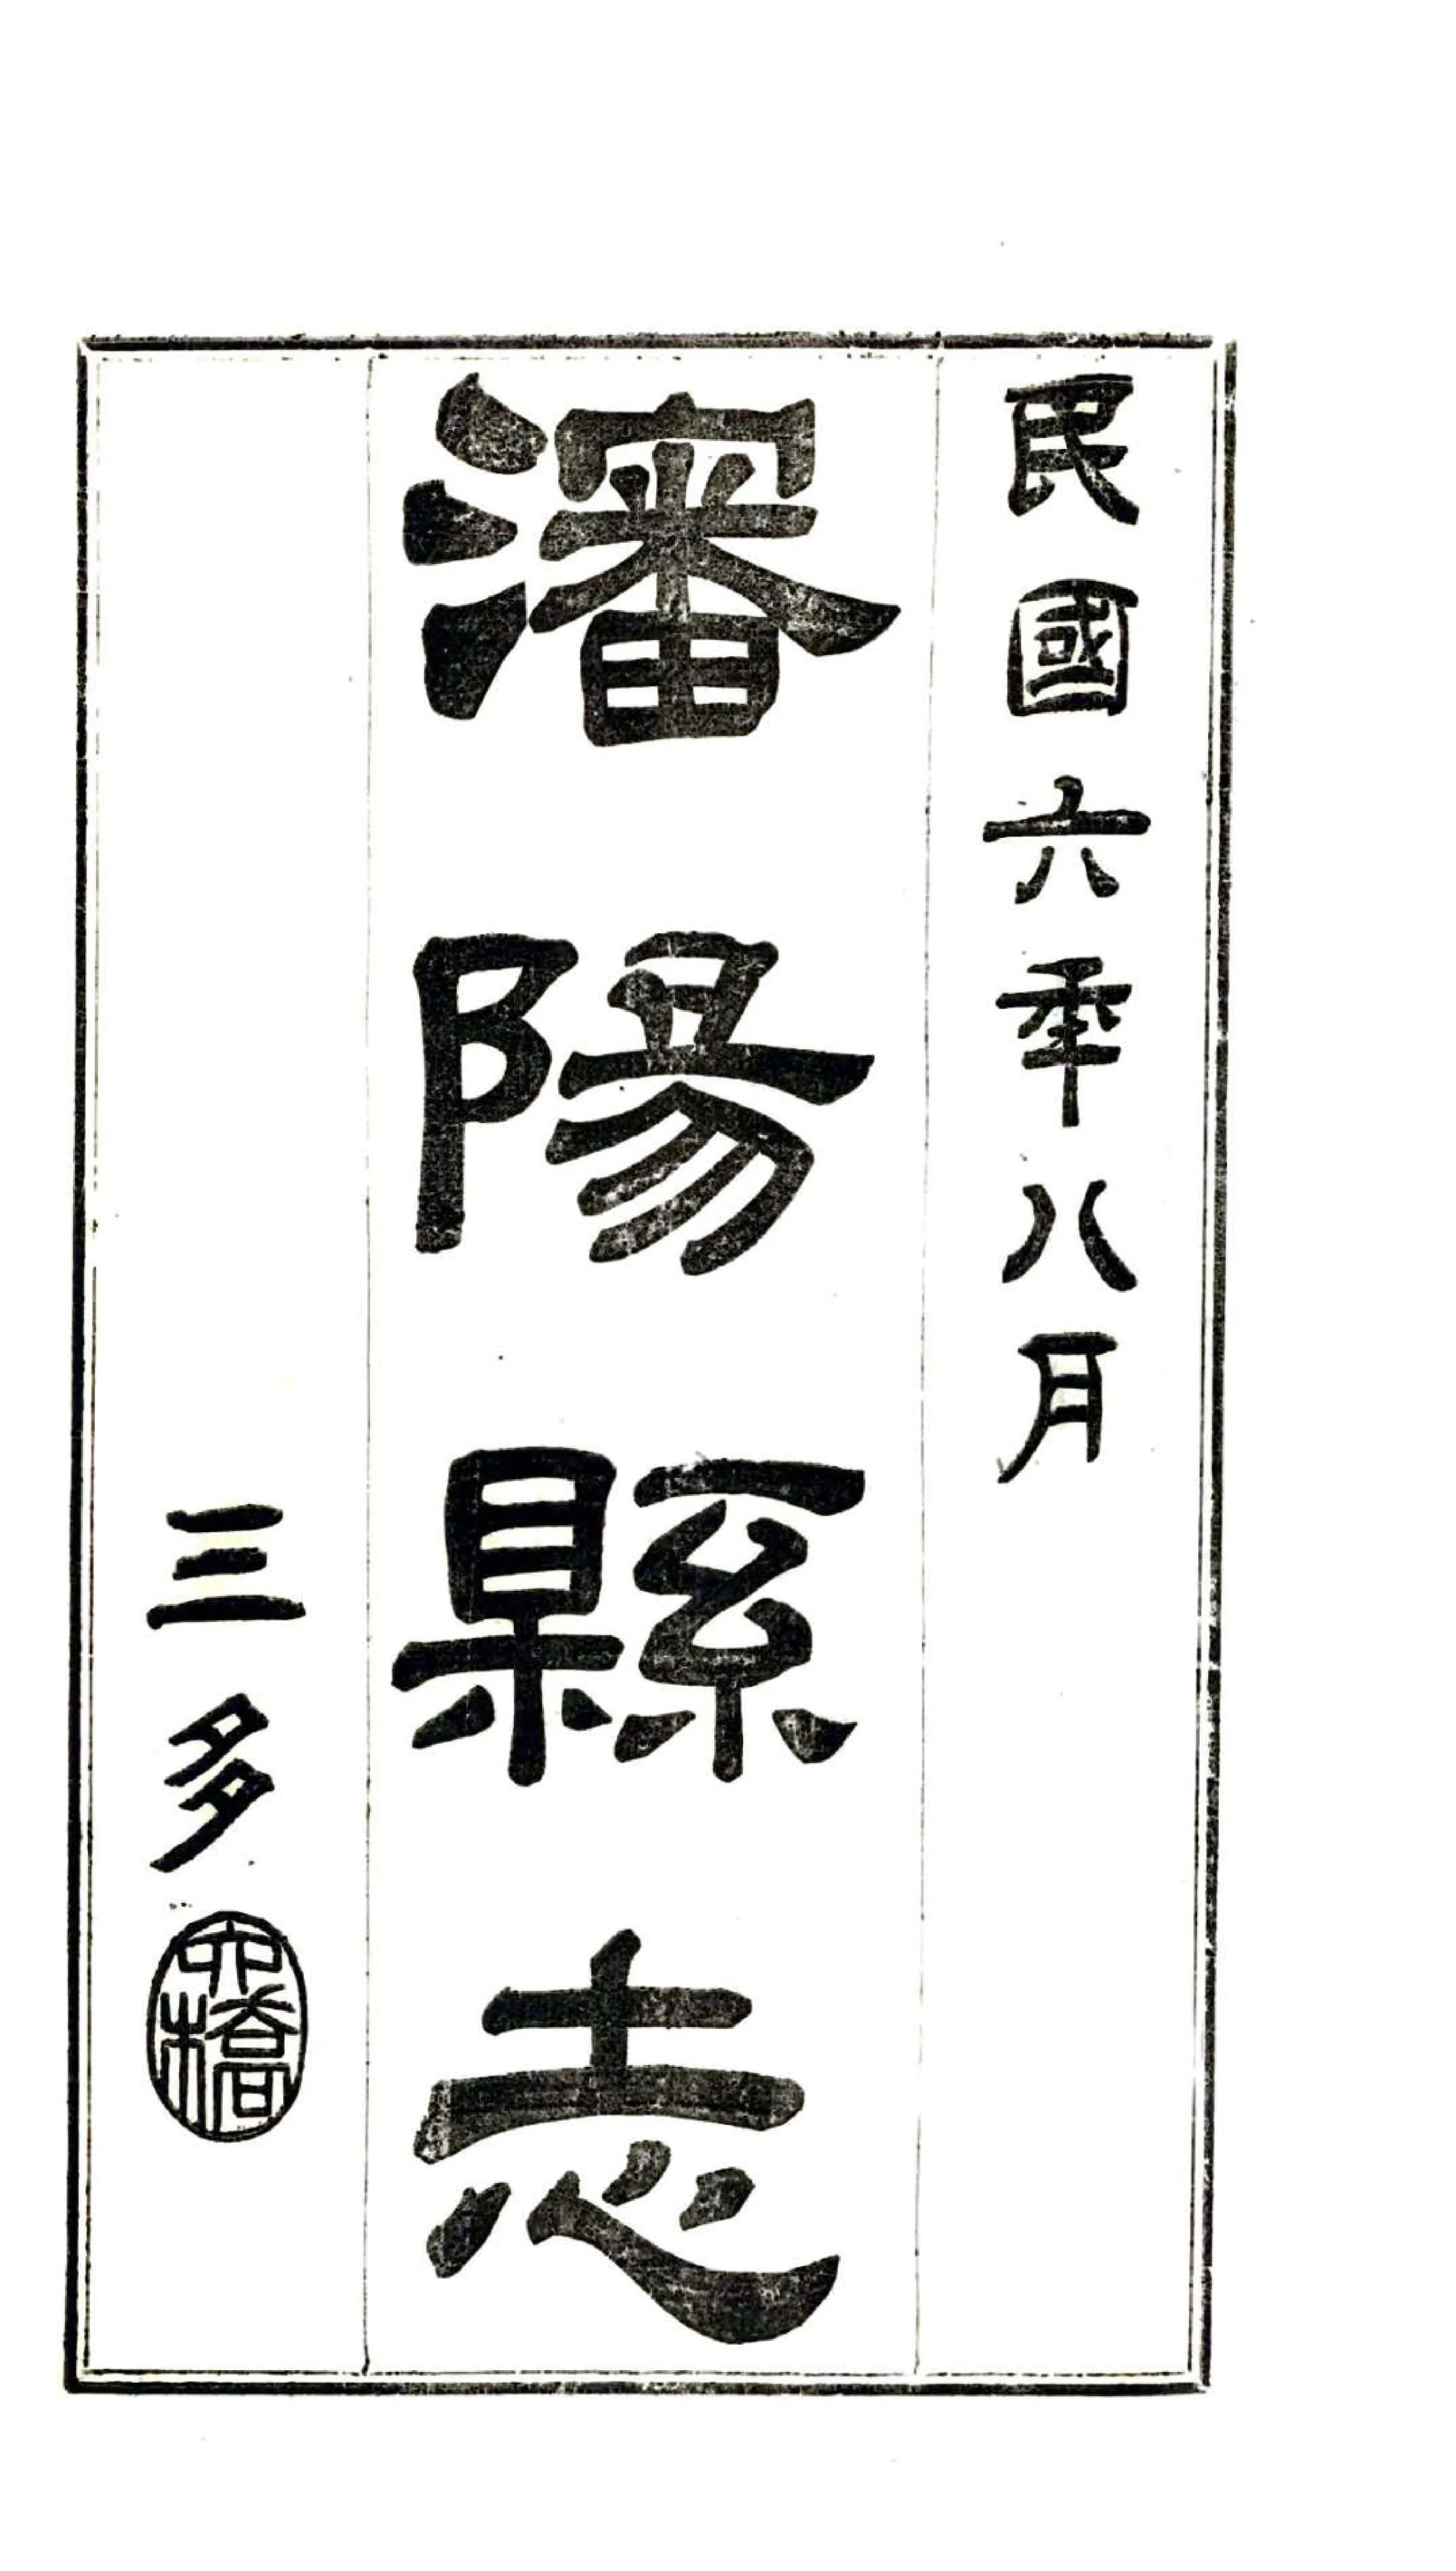 民國六年八月
瀋陽縣志
三多
六橋